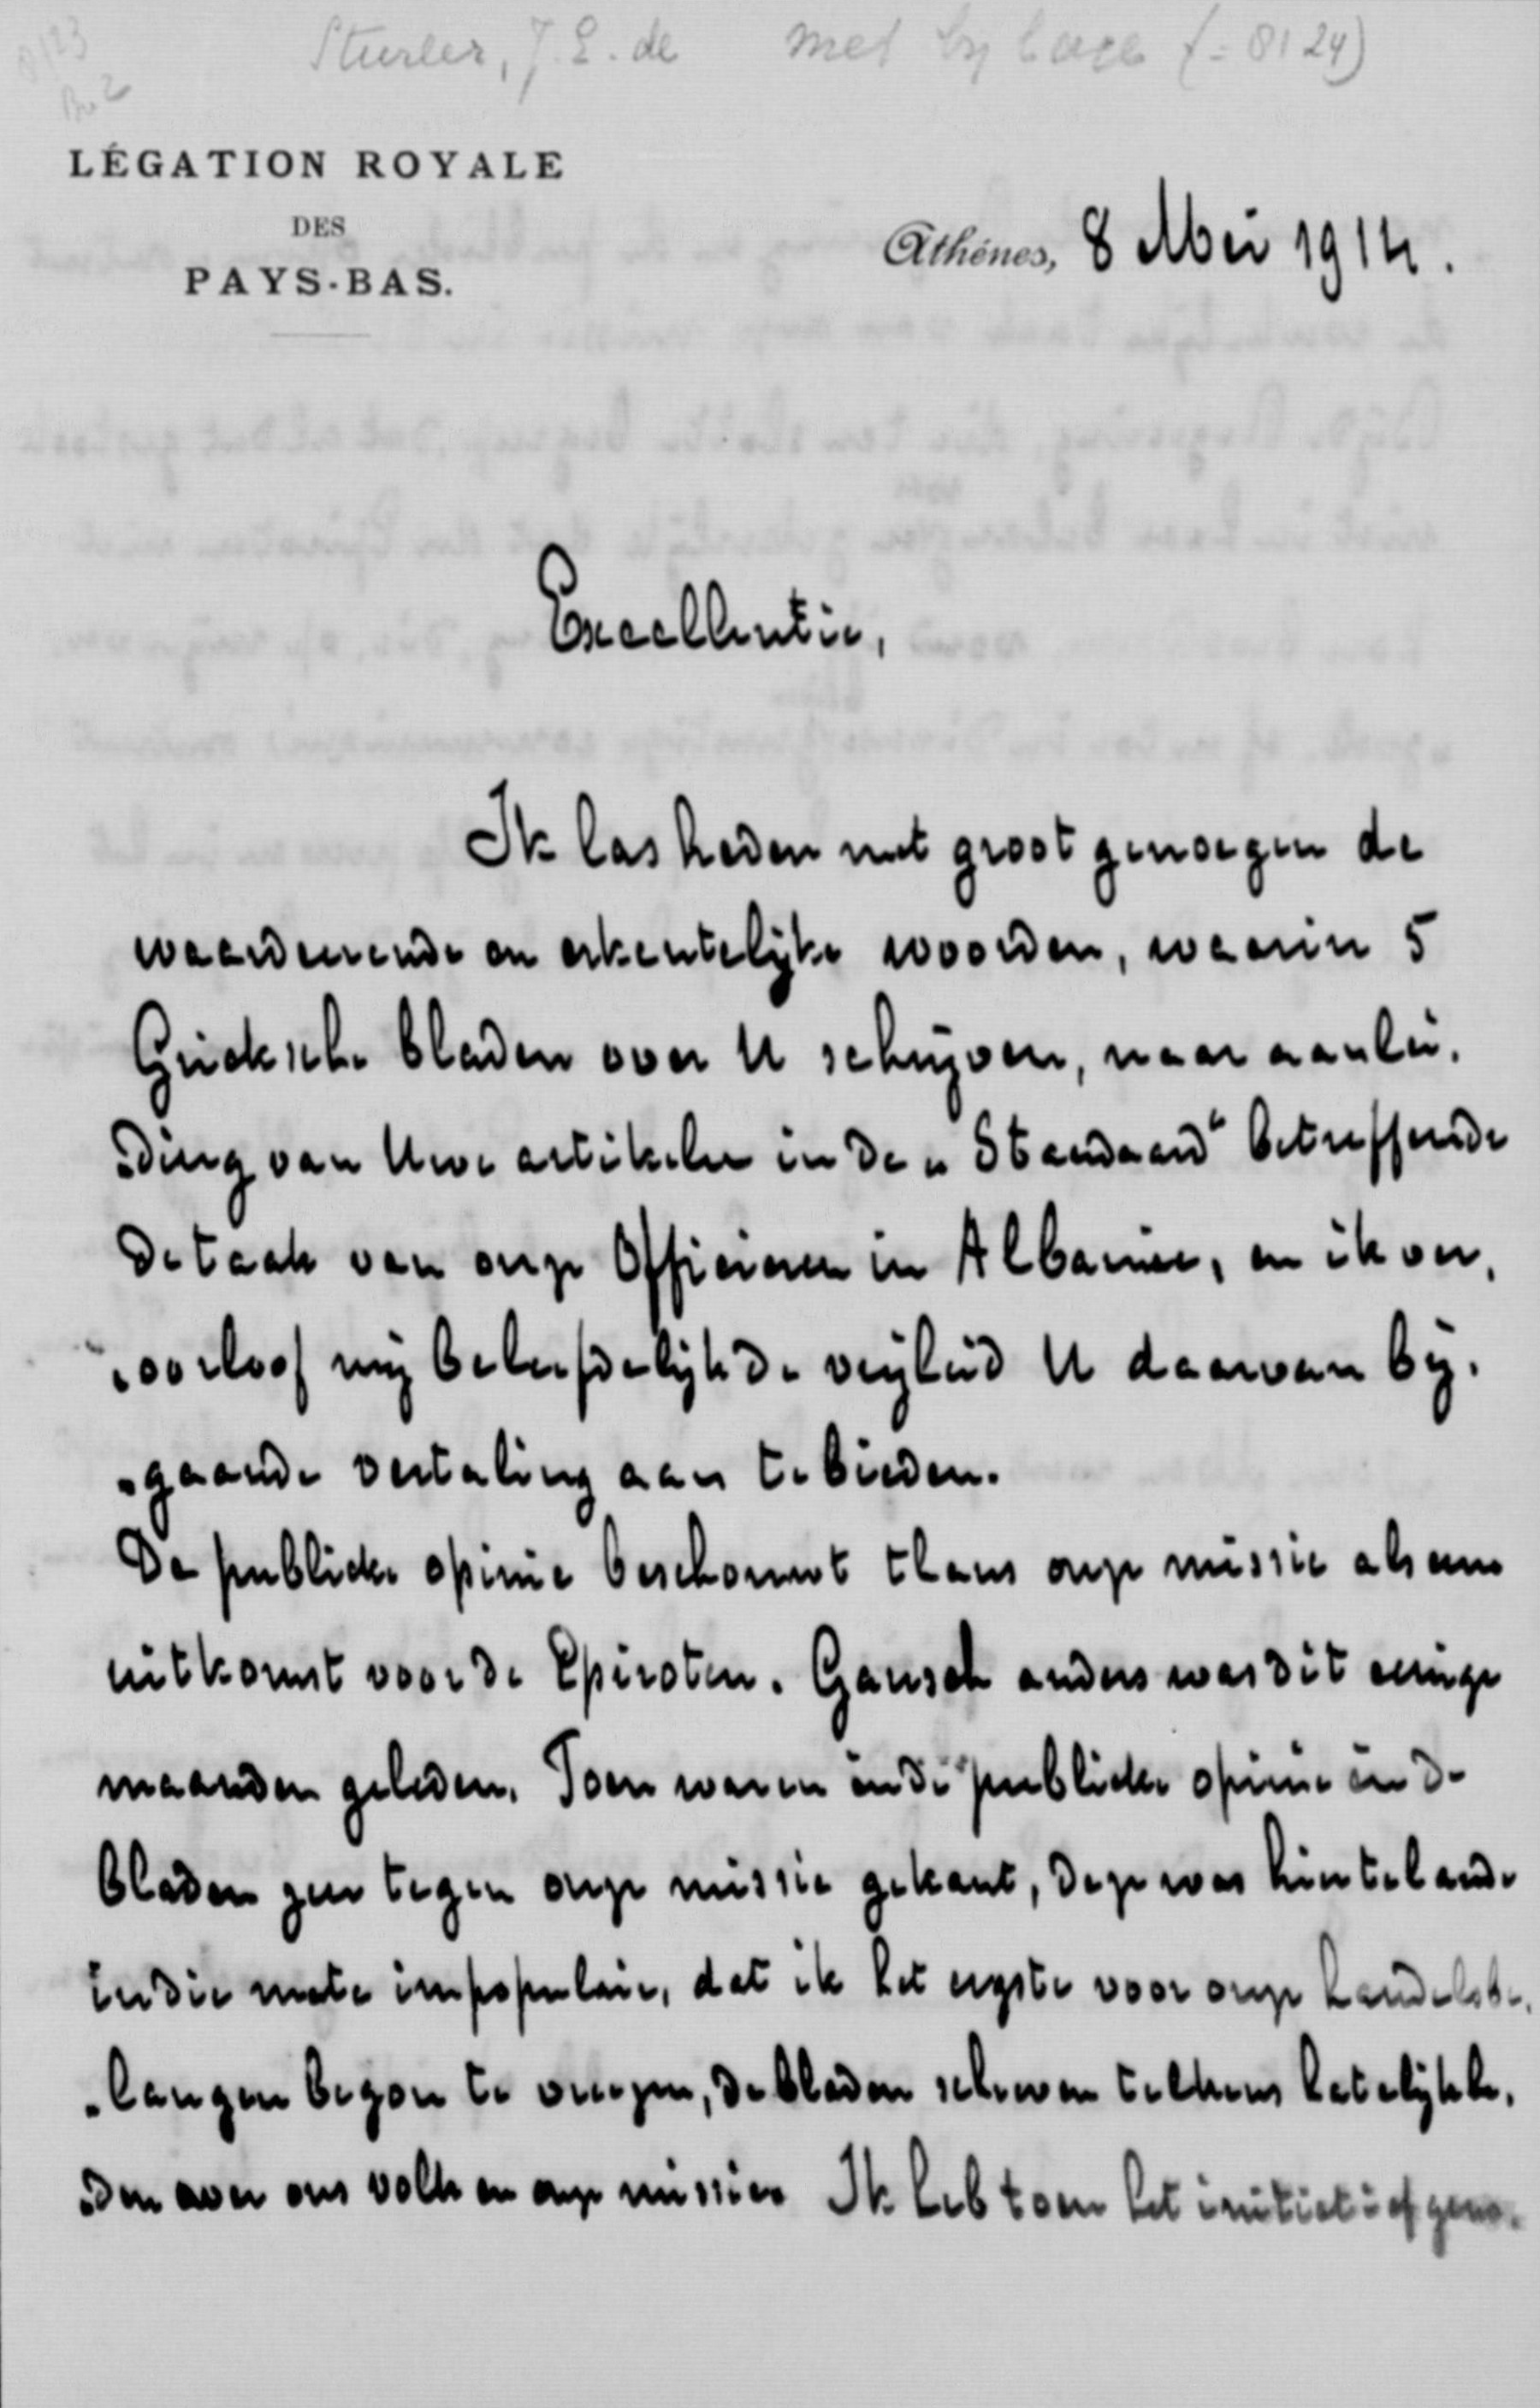 Sturler, J. E. de met bylage (= 8124)
8123
Br 2
LÉGATION ROYALE
DES
PAYS-BAS.
Athénes, 8 Mei 1914.
Excellentie,
Ik las heden met groot genoegen de
waardeerende en erkentelijke woorden, waarin 5
Grieksche bladen over U schrijven, naar aanlei-
-ding van Uwe artikelen in de „Standaard“ betreffende
de taak van onze Officieren in Albanie, en ik ver-
-oorloof mij beleefdelijk de vrijheid U daarvan bij-
-gaande vertaling aan te bieden.
De publieke opinie beschouwt thans onze missie als eene
uitkomst voor de Epiroten. Gansch anders was dit eenige
maanden geleden. Toen waren én de publieke opinie én de
bladen zeer tegen onze missie gekant, deze was hier te lande
in die mate impopulair, dat ik het ergste voor onze handelsbe-
-langen begon te vreezen, de bladen schreven telkens hatelijkhe-
-den over ons volk en onze missie. Ik heb toen het initiatief geno-